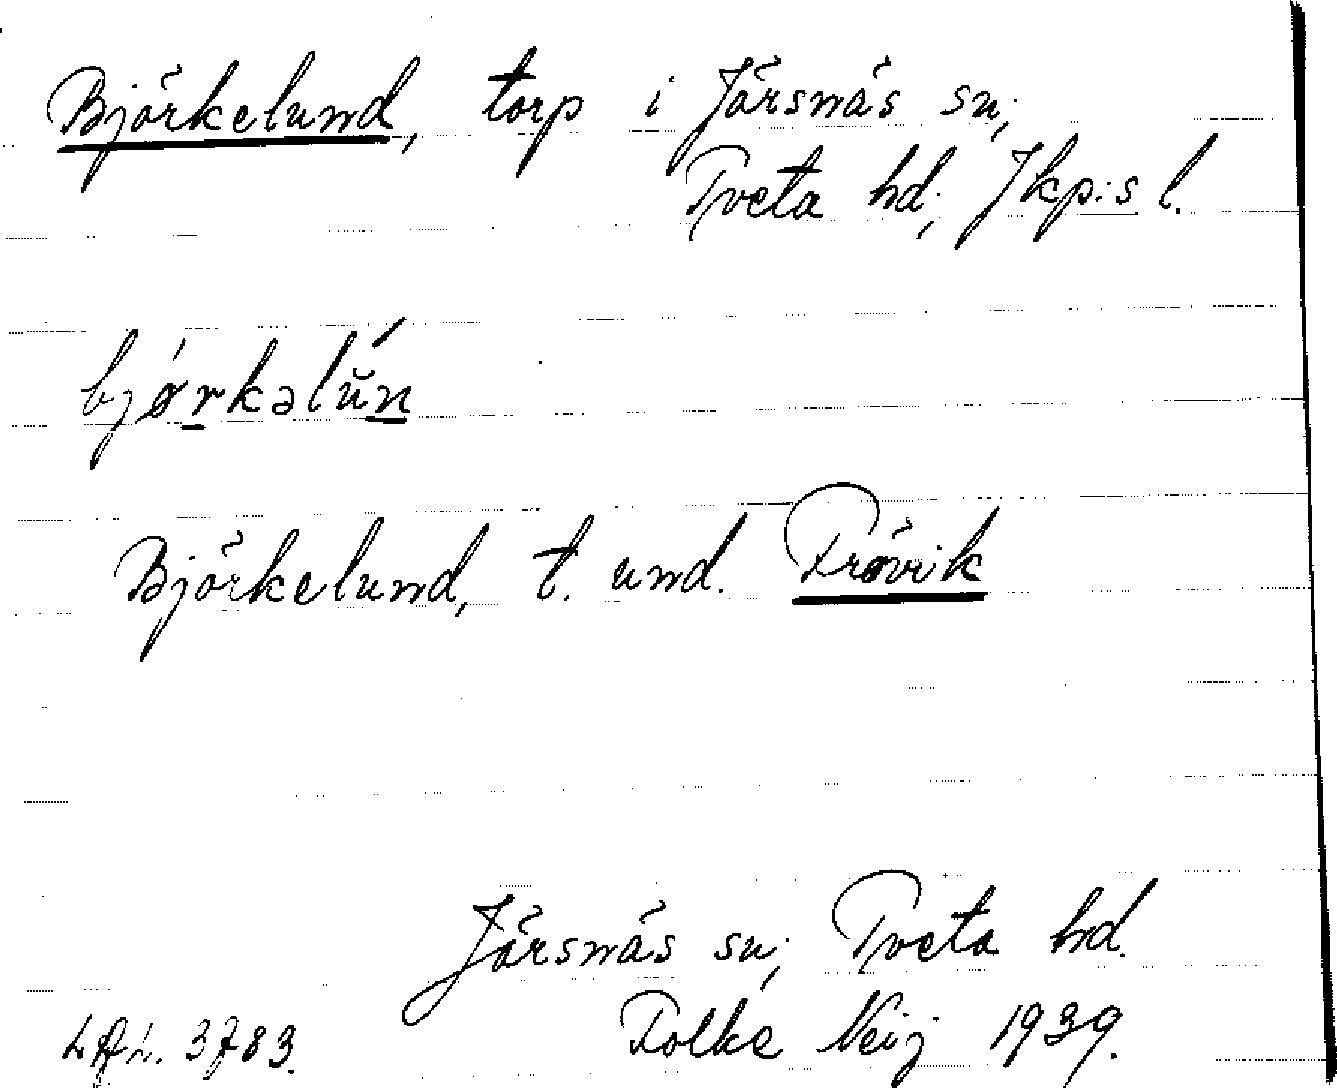 Björkelund, torp i Järsnäs sn.,
Tveta hd., Jkp:s l.
bjørkəlŭn
Björkelund, t. und. Frövik
Järsnäs sn., Tveta hd.
LAL. 3783. Folke Neij 1939.